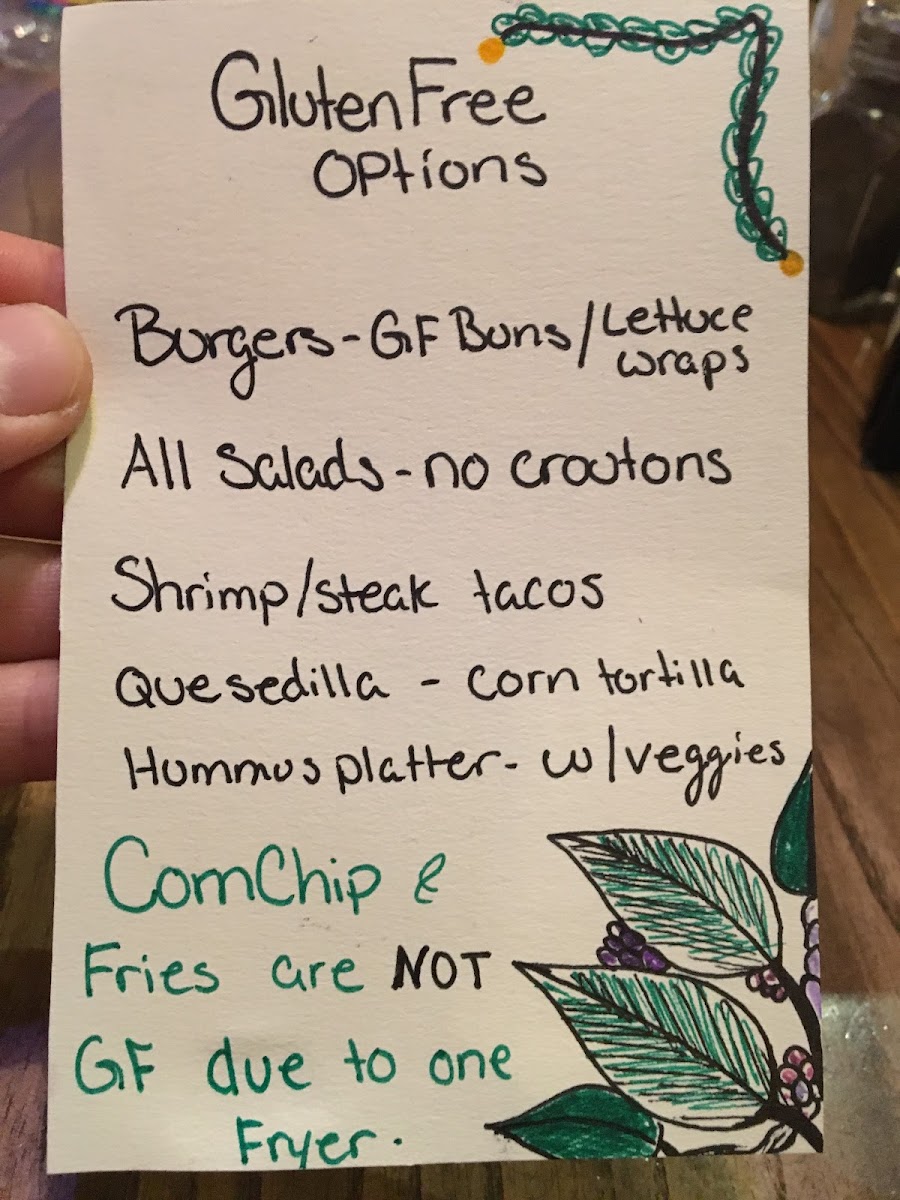 Gluten Free
Options
Burgers - GF Buns / Lettuce
wraps
All Salads - no croutons
Shrimp/steak tacos
Quesedilla - corn tortilla
Hummus platter - w/veggies
Corn Chip &
Fries are NOT
GF due to one
Fryer.